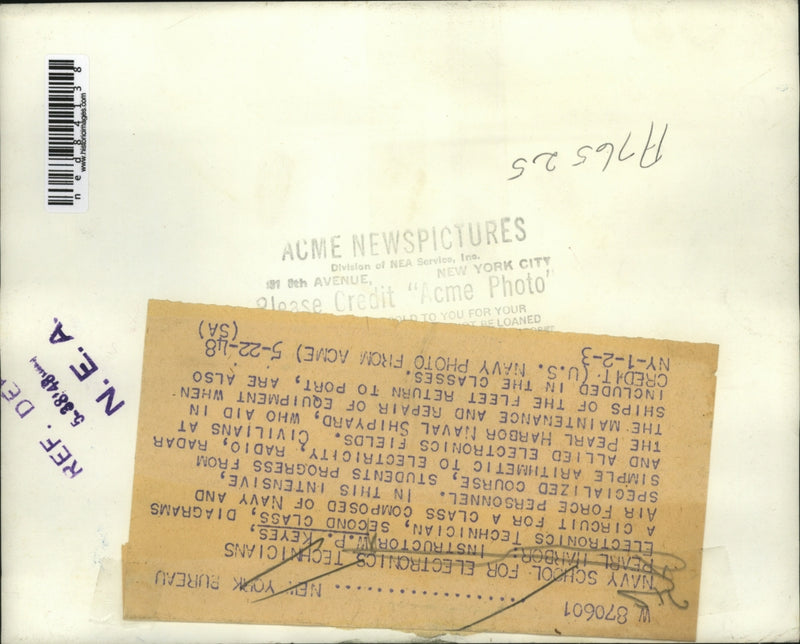 ned84138
www.historicimages.com
A76525
ACME NEWSPICTURES
Division of NEA Service, Inc.
8th AVENUE, NEW YORK CITY
Please Credit "Acme Photo"
SOLD TO YOU FOR YOUR
BE LOANED
REF. DE
5-28-48
N. E. A.
W 870601 ................... NEW YORK BUREAU
NAVY SCHOOL FOR ELECTRONICS TECHNICIANS
PEARL HARBOR: INSTRUCTOR W.P. KEYES,
ELECTRONICS TECHNICIAN, SECOND CLASS, DIAGRAMS
A CIRCUIT FOR A CLASS COMPOSED OF NAVY AND
AIR FORCE PERSONNEL. IN THIS INTENSIVE,
SPECIALIZED COURSE, STUDENTS PROGRESS FROM
SIMPLE ARITHMETIC TO ELECTRICITY, RADIO, RADAR
AND ALLIED ELECTRONICS FIELDS. CIVILIANS AT
THE PEARL HARBOR NAVAL SHIPYARD, WHO AID IN
THE MAINTENANCE AND REPAIR OF EQUIPMENT WHEN
SHIPS OF THE FLEET RETURN TO PORT, ARE ALSO
INCLUDED IN THE CLASSES.
CREDIT (U.S. NAVY PHOTO FROM ACME) 5-22-48
NY-1-2-3 (SA)